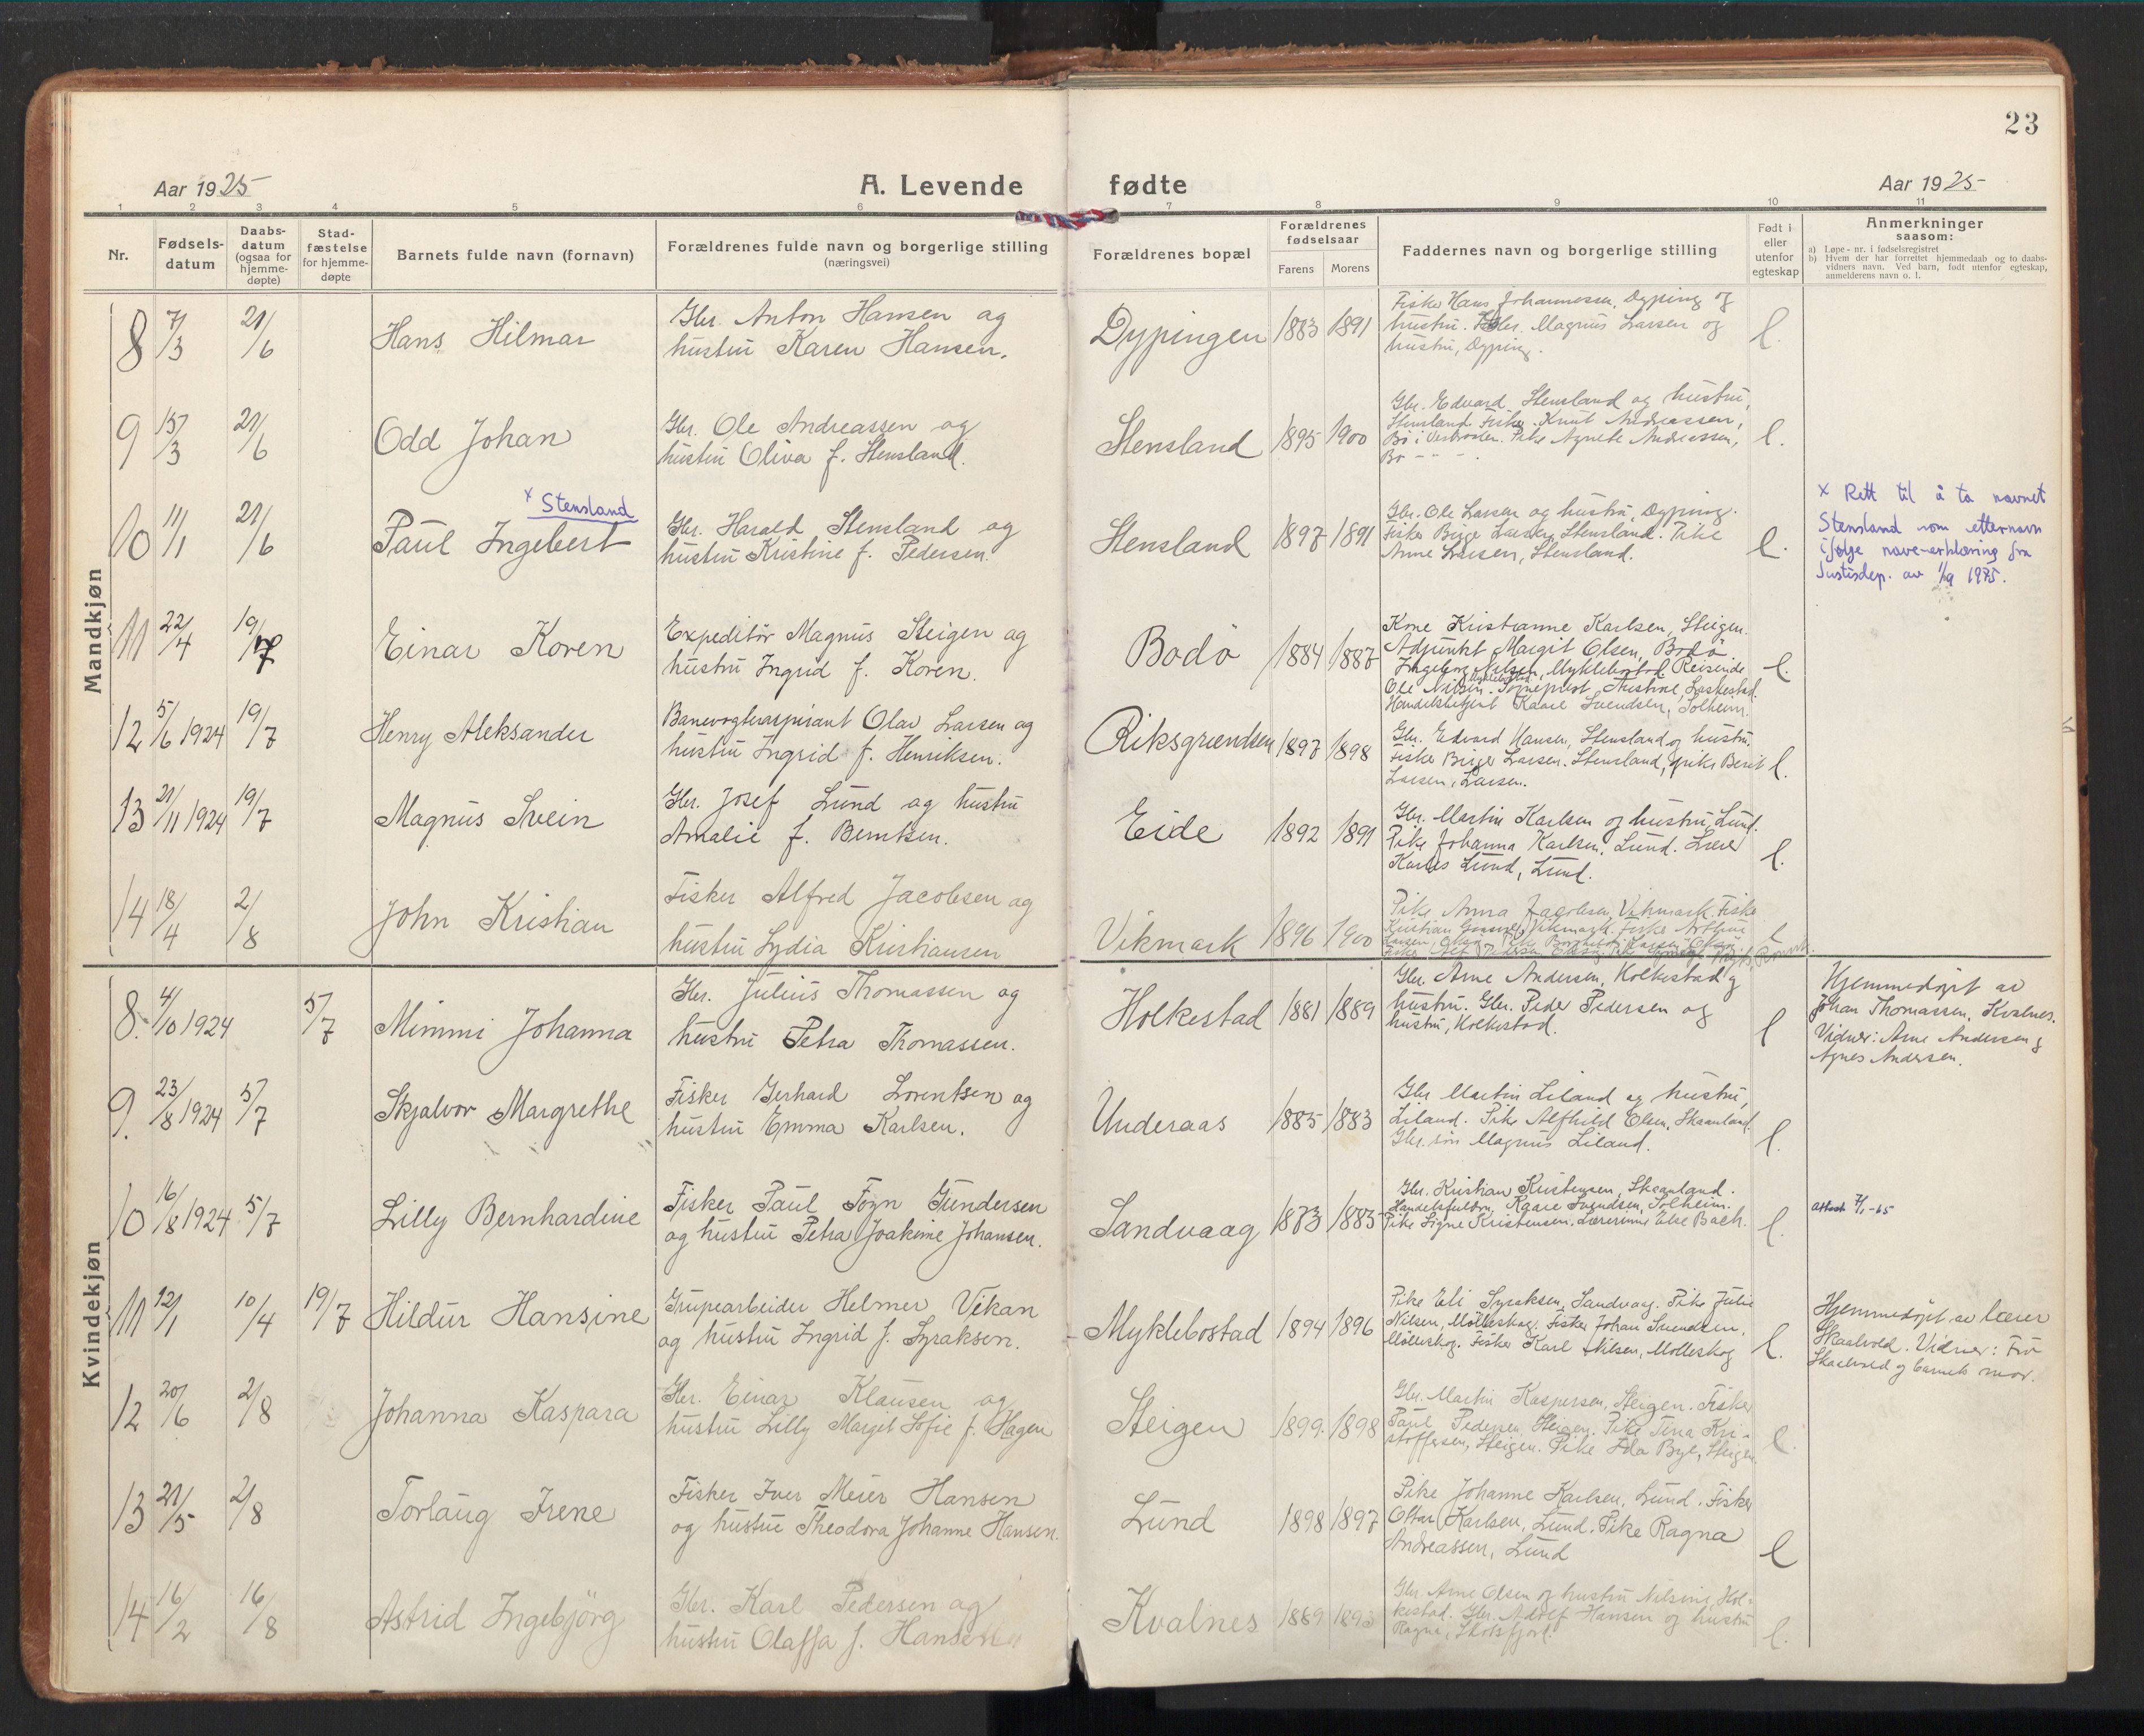 23
Aar 1925
A. Levende fødte
Aar 1925
1 2 3 4 5 6 7 8 9 10 11
Nr.
Fødsels-
datum
Daabs-
datum
(ogsaa for
hjemme-
døpte)
Stad-
fæstelse
for hjemme-
døpte
Barnets fulde navn (fornavn)
Forældrenes fulde navn og borgerlige stilling
(næringsvei)
Forældrenes bopæl
Forældrenes
fødselsaar
Farens Morens
Faddernes navn og borgerlige stilling
Født i
eller
utenfor
egteskap
Anmerkninger
saasom:
a) Løpe-nr. i fødselsregistret
b) Hvem der har forrettet hjemmedaab og to daabs-
vidners navn. Ved barn, født utenfor egteskap,
anmelderens navn o. l.
Mandkjøn
8 7/3 21/6 Hans Hilmar
Gbr. Anton Hansen og
hustru Karen Hansen.
Dypingen 1883 1891
Fisker Hans Johannessen, Dyping og
hustru. Gbr. Magnus Larsen og
hustru, Dyping.
l.
9 15/3 21/6 Odd Johan
Gbr. Ole Andreassen og
hustru Oliva f. Stensland.
Stensland 1895 1900
Gbr. Edvard Stensland og hustru,
Stensland. Fisker Knut Andreassen,
Bø i Vesteraalen. Pike Agnete Andreassen,
Bø - " -
l.
10 11/1 21/6 Paul Ingebert
x Stensland
Gbr. Harald Stensland og
hustru Kristine f. Pedersen.
Stensland 1897 1891
Gbr. Ole Larsen og hustru, Dyping.
Fisker Birger Larsen, Stensland. Pike
Anne Larsen, Stensland.
l.
x Rett til å ta navnet
Stensland som etternavn
ifølge navne-erklæring fra
Justisdep. av 1/9 1975.
11 22/4 19/7 Einar Koren
Expeditør Magnus Steigen og
hustru Ingrid f. Koren.
Bodö 1884 1887
Kone Kristianne Karlsen, Steigen.
Adjunkt Margit Olsen, Bodö
Ingeborg Nilsen, Myklebostad. Reisende
Ole Nilsen. Sogneprest Laskestad.
Handelsbetjent Kaare Svendsen, Solheim.
l.
12 5/6 1924 19/7 Henry Aleksander
Banevogteraspirant Olav Larsen og
hustru Ingrid f. Henriksen.
Riksgrændsen 1897 1898
Gbr. Edvard Hansen, Stensland og hustru.
Fisker Birger Larsen. Stensland, pike Berit
Larsen, Larsen.
l.
13 21/11 1924 19/7 Magnus Svein
Gbr. Josef Lund og hustru
Amalie f. Berntsen.
Eide 1892 1891
Gbr. Martin Karlsen og hustru, Lund.
Pike Johanna Karlsen, Lund. Lærer
Lund, Lund.
l.
14 18/4 2/8 John Kristian
Fisker Alfred Jacobsen og
hustru Lydia Kristiansen
Vikmark 1896 1900
Pike Anna Jacobsen, Vikmark. Fisker
Kristian Vikmark. Fisker Arthur
l
Kvindekjøn
8. 4/10 1924 5/7 Mimmi Johanna
Gbr. Julius Thomassen og
hustru Petra Thomassen.
Holkestad 1881 1889
Gbr. Arne Andersen, Holkestad og
hustru. Gbr. Peder Pedersen og
hustru, Holkestad.
l
Hjemmedøpt av
Johan Thomassen, Kvalnes.
Vidner: Arne Andersen og
Agnes Andersen.
9. 23/8 1924 5/7 Skjalvor Margrethe
Fisker Gerhard Lorentsen og
hustru Emma Karlsen.
Underaas 1885 1883
Gbr Martin Liland og hustru,
Liland. Pike Alfhild Olsen, Skaanland.
Gbr. søn Magnus Liland.
l.
10 16/8 1924 5/7 Lilly Bernhardine
Fisker Paul Fozn Gundersen
og hustru Petra Joakime Johansen.
Sandvaag 1883 1885
Gbr. Kristian Kristensen, Skaanland.
Handelsfuldm. Kaare Svendsen, Solheim.
Pike Signe Kristensen. Lærerinne Else Bach.
l.
attest 7/1-65
11 12/1 10/4 19/7 Hildur Hansine
Grupearbeider Helmer Vikan
og hustru Ingrid f. Syraksen.
Myklebostad 1894 1896
Pike Eli Syraksen, Sandvaag. Pike Julie
Nilsen, Mölleskog. Fisker Johan Svendsen,
Mölleskog. Fisker Karl Nilsen, Mölleskog
l.
Hjemmedøpt av lærer
Skaalvold. Vidner: Fru
Skaalvold og barnets mor.
12 20/6 2/8 Johanna Kaspara
Gbr. Einar Klausen og
hustru Lilly Margit Sofie f. Hagen
Steigen 1899. 1898
Gbr. Martin Kaspersen, Steigen. Fisker
Paul Pedersen, Steigen. Pike Tina Kri-
stoffersen, Steigen. Pike Ida Bye, Steigen.
l.
13 21/5 2/8 Torlaug Irene
Fisker Iver Meier Hansen
og hustru Theodora Johanne Hansen.
Lund 1898 1897
Pike Johanne Karlsen, Lund. Fisker
Ottar Karlsen, Lund. Pike Ragna
Andreassen, Lund
l
14 16/2 16/8 Astrid Ingebjörg
Gbr. Karl Pedersen og
hustru Olaffa f. Hansen
Kvalnes 1889 1893
Gbr. Arne Olsen og hustru Nilsine, Hol-
kestad. Gbr. Adolf Hansen og hustru
Ragna, Skotsfjord.
l.